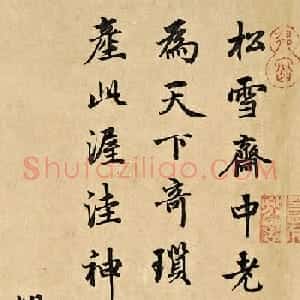 松雪齋中老
為天下奇瓆
產此渥洼神
Shufaziliao.COM